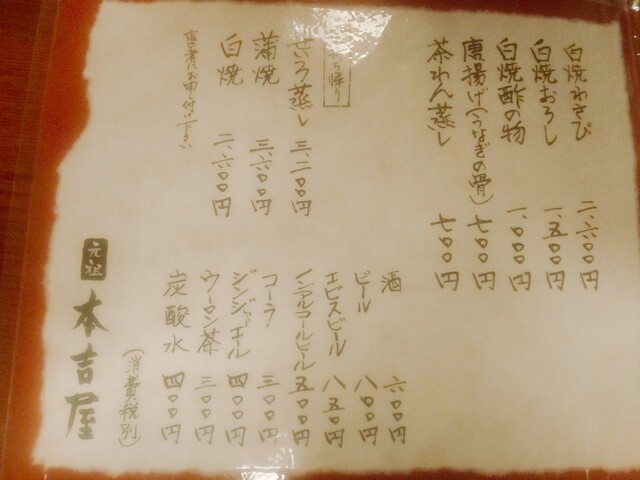 白焼わさび 二、六〇〇円
白焼おろし 一、五〇〇円
白焼酢の物 一、〇〇〇円
唐揚げ(うなぎの骨) 七〇〇円
茶わん蒸し 七〇〇円
持ち帰り
せいろ蒸し 三、二〇〇円
蒲焼 三、六〇〇円
白焼 二、六〇〇円
店の者にお申し付け下さい
酒 六〇〇円
ビール 八〇〇円
エビスビール 八五〇円
ノンアルコールビール 五〇〇円
コーラ 三〇〇円
ジンジャーエール 四〇〇円
ウーロン茶 三〇〇円
炭酸水 四〇〇円
(消費税別)
元祖
本吉屋